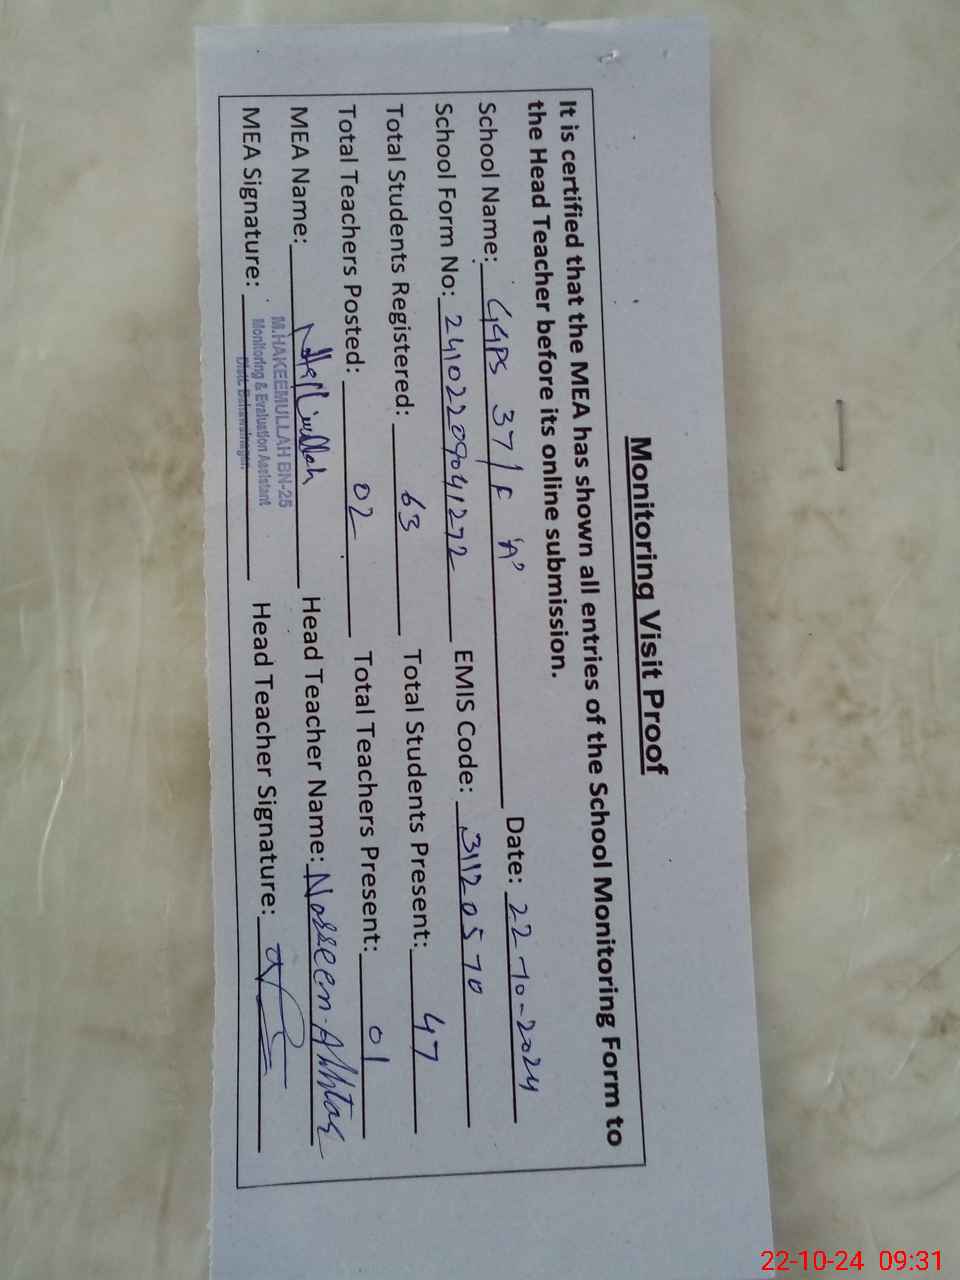 Monitoring Visit Proof
It is certified that the MEA has shown all entries of the School Monitoring Form to
the Head Teacher before its online submission.
School Name: GGPS 37/F 'A' Date: 22-10-2024
School Form No: 24102209041272 EMIS Code: 31120570
Total Students Registered: 63 Total Students Present: 47
Total Teachers Posted: 02 Total Teachers Present: 01
MEA Name: Head Teacher Name: Nasreen Akhtar
MEA Signature: Head Teacher Signature:
M.HAKEEMULLAH BN-25
Monitoring & Evaluation Assistant
Distt. Bahawalnagar.
22-10-24 09:31